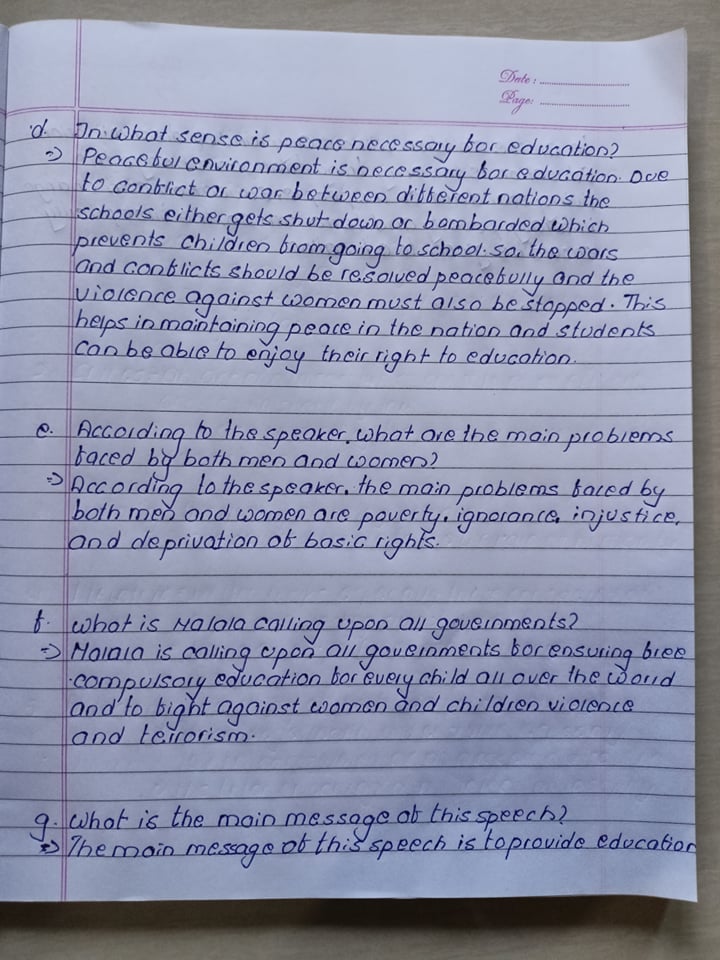 Date: ..............................
Page: ..............................
d. In what sense is peace necessary for education?
=> Peaceful environment is necessary for education. Due
to conflict or war between different nations the
schools either gets shut down or bombarded which
prevents children from going to school. so, the wars
and conflicts should be resolved peacefully and the
violence against women must also be stopped. This
helps in maintaining peace in the nation and students
can be able to enjoy their right to education.
e. According to the speaker, what are the main problems
faced by both men and women?
=> According to the speaker, the main problems faced by
both men and women are poverty, ignorance, injustice,
and deprivation of basic rights.
f. What is Malala calling upon all governments?
=> Malala is calling upon all governments for ensuring free
compulsory education for every child all over the world
and to fight against women and children violence
and terrorism.
g. What is the main message of this speech?
=> The main message of this speech is to provide education